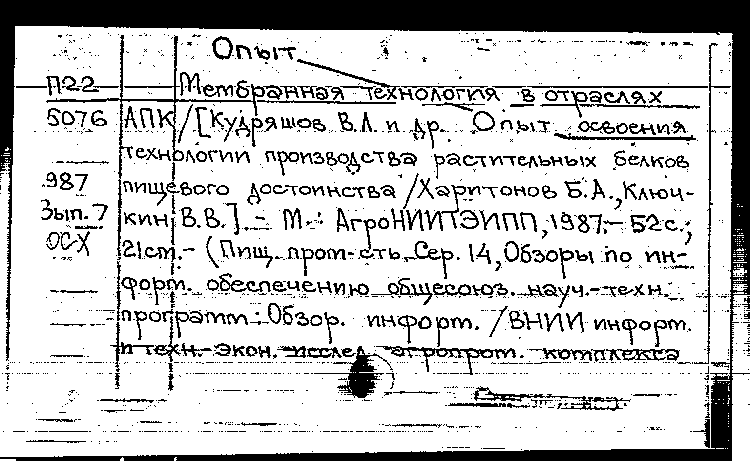 Опыт
П22 Мембранная технология в отраслях
5076 АПК/[Кудряшов В.Л. и др. Опыт освоения
технологии производства растительных белков
987 пищевого достоинства/Харитонов Б.А.,Ключ-
Зып.7 кин В.В.].- М.: АгроНИИТЭИПП,1987.- 52с.;
ОСХ 21см.- (Пищ. пром-сть. Сер. 14,Обзоры по ин-
форм. обеспечению общесоюз. науч.-техн.
программ: Обзор. информ. /ВНИИ информ.
и техн.-экон. исслед. агропром. комплекса